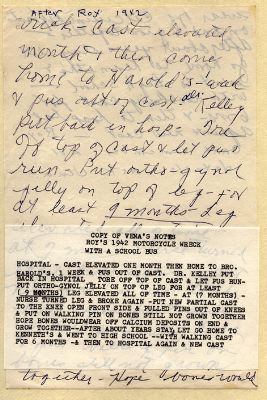 After Roy 1942
wreak - Cast elevated
month & then come
home to Harold's - 1 week
& pus out of cast. Dr. Kelley
put back in hosp - Tore
off top of cast & let pus
run - Put ortho-gynol
jelly on top of leg - for
at least 9 months - Leg
COPY OF VENA'S NOTES
ROY'S 1942 MOTORCYCLE WRECK
WITH A SCHOOL BUS
HOSPITAL - CAST ELEVATED ONE MONTH THEN HOME TO BRO.
HAROLD'S. 1 WEEK & PUS OUT OF CAST. DR. KELLEY PUT
BACK IN HOSPITAL  TORE OFF TOP OF CAST & LET PUS RUN-
PUT ORTHO-GYNOL JELLY ON TOP OF LEG FOR AT LEAST
(9 MONTHS) LEG ELEVATED ALL OF TIME - AT (7 MONTHS) -
NURSE TURNED LEG & BROKE AGAIN -PUT NEW PARTIAL CAST
TO THE KNEE OPEN FRONT SIDE & PULLED PINS OUT OF KNEES
& PUT ON WALKING PIN ON BONES STILL NOT GROWN TOGETHER
HOPE BONES WOULDWEAR OFF CALCIUM DEPOSITS ON END &
GROW TOGETHER--AFTER ABOUT YEARS STAY LET GO HOME TO
KENNETH'S & WENT TO HIGH SCHOOL --WITH WALKING CAST
FOR 6 MONTHS -& THEN TO HOSPITAL AGAIN & NEW CAST
together - Hope bones would